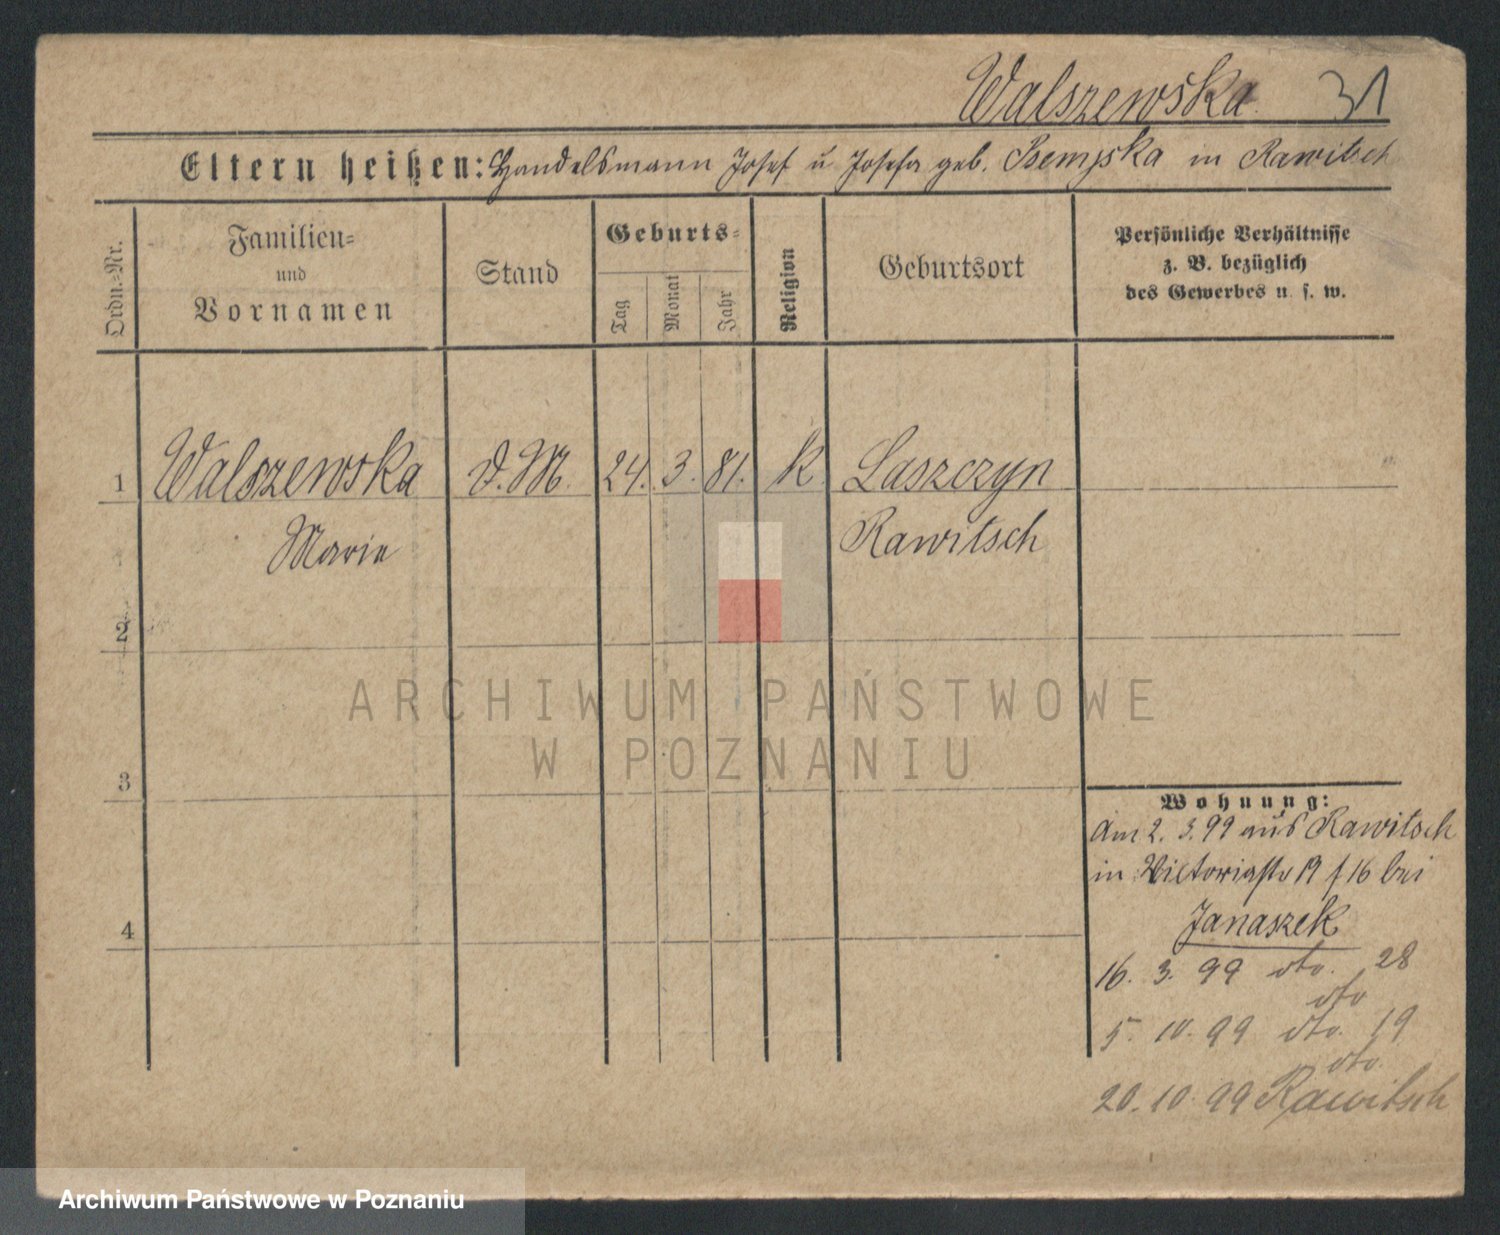 Walszewska 31
Eltern heißen: Handelsmann Josef u Josefa geb. in Rawitsch
Ordn.-Nr.
Familien-
und
Vornamen
Stand
Geburts-
Tag
Monat
Jahr
Religion
Geburtsort
Persönliche Verhältnisse
z. B. bezüglich
des Gewerbes u. s. w.
1 Walszewska d. M. 24. 3. 81. k Laszczyn
Marie Rawitsch
2
ARCHIWUM PAŃSTWOWE
W POZNANIU
3
Wohnung:
Am 2. 3. 99 aus Rawitsch
in Victoriastr 19 16 bei
4
Janaszek
16. 3. 99 dto. 28
dto
5. 10. 99 dto. 19
dto.
20. 10. 99 Rawitsch
Archiwum Państwowe w Poznaniu